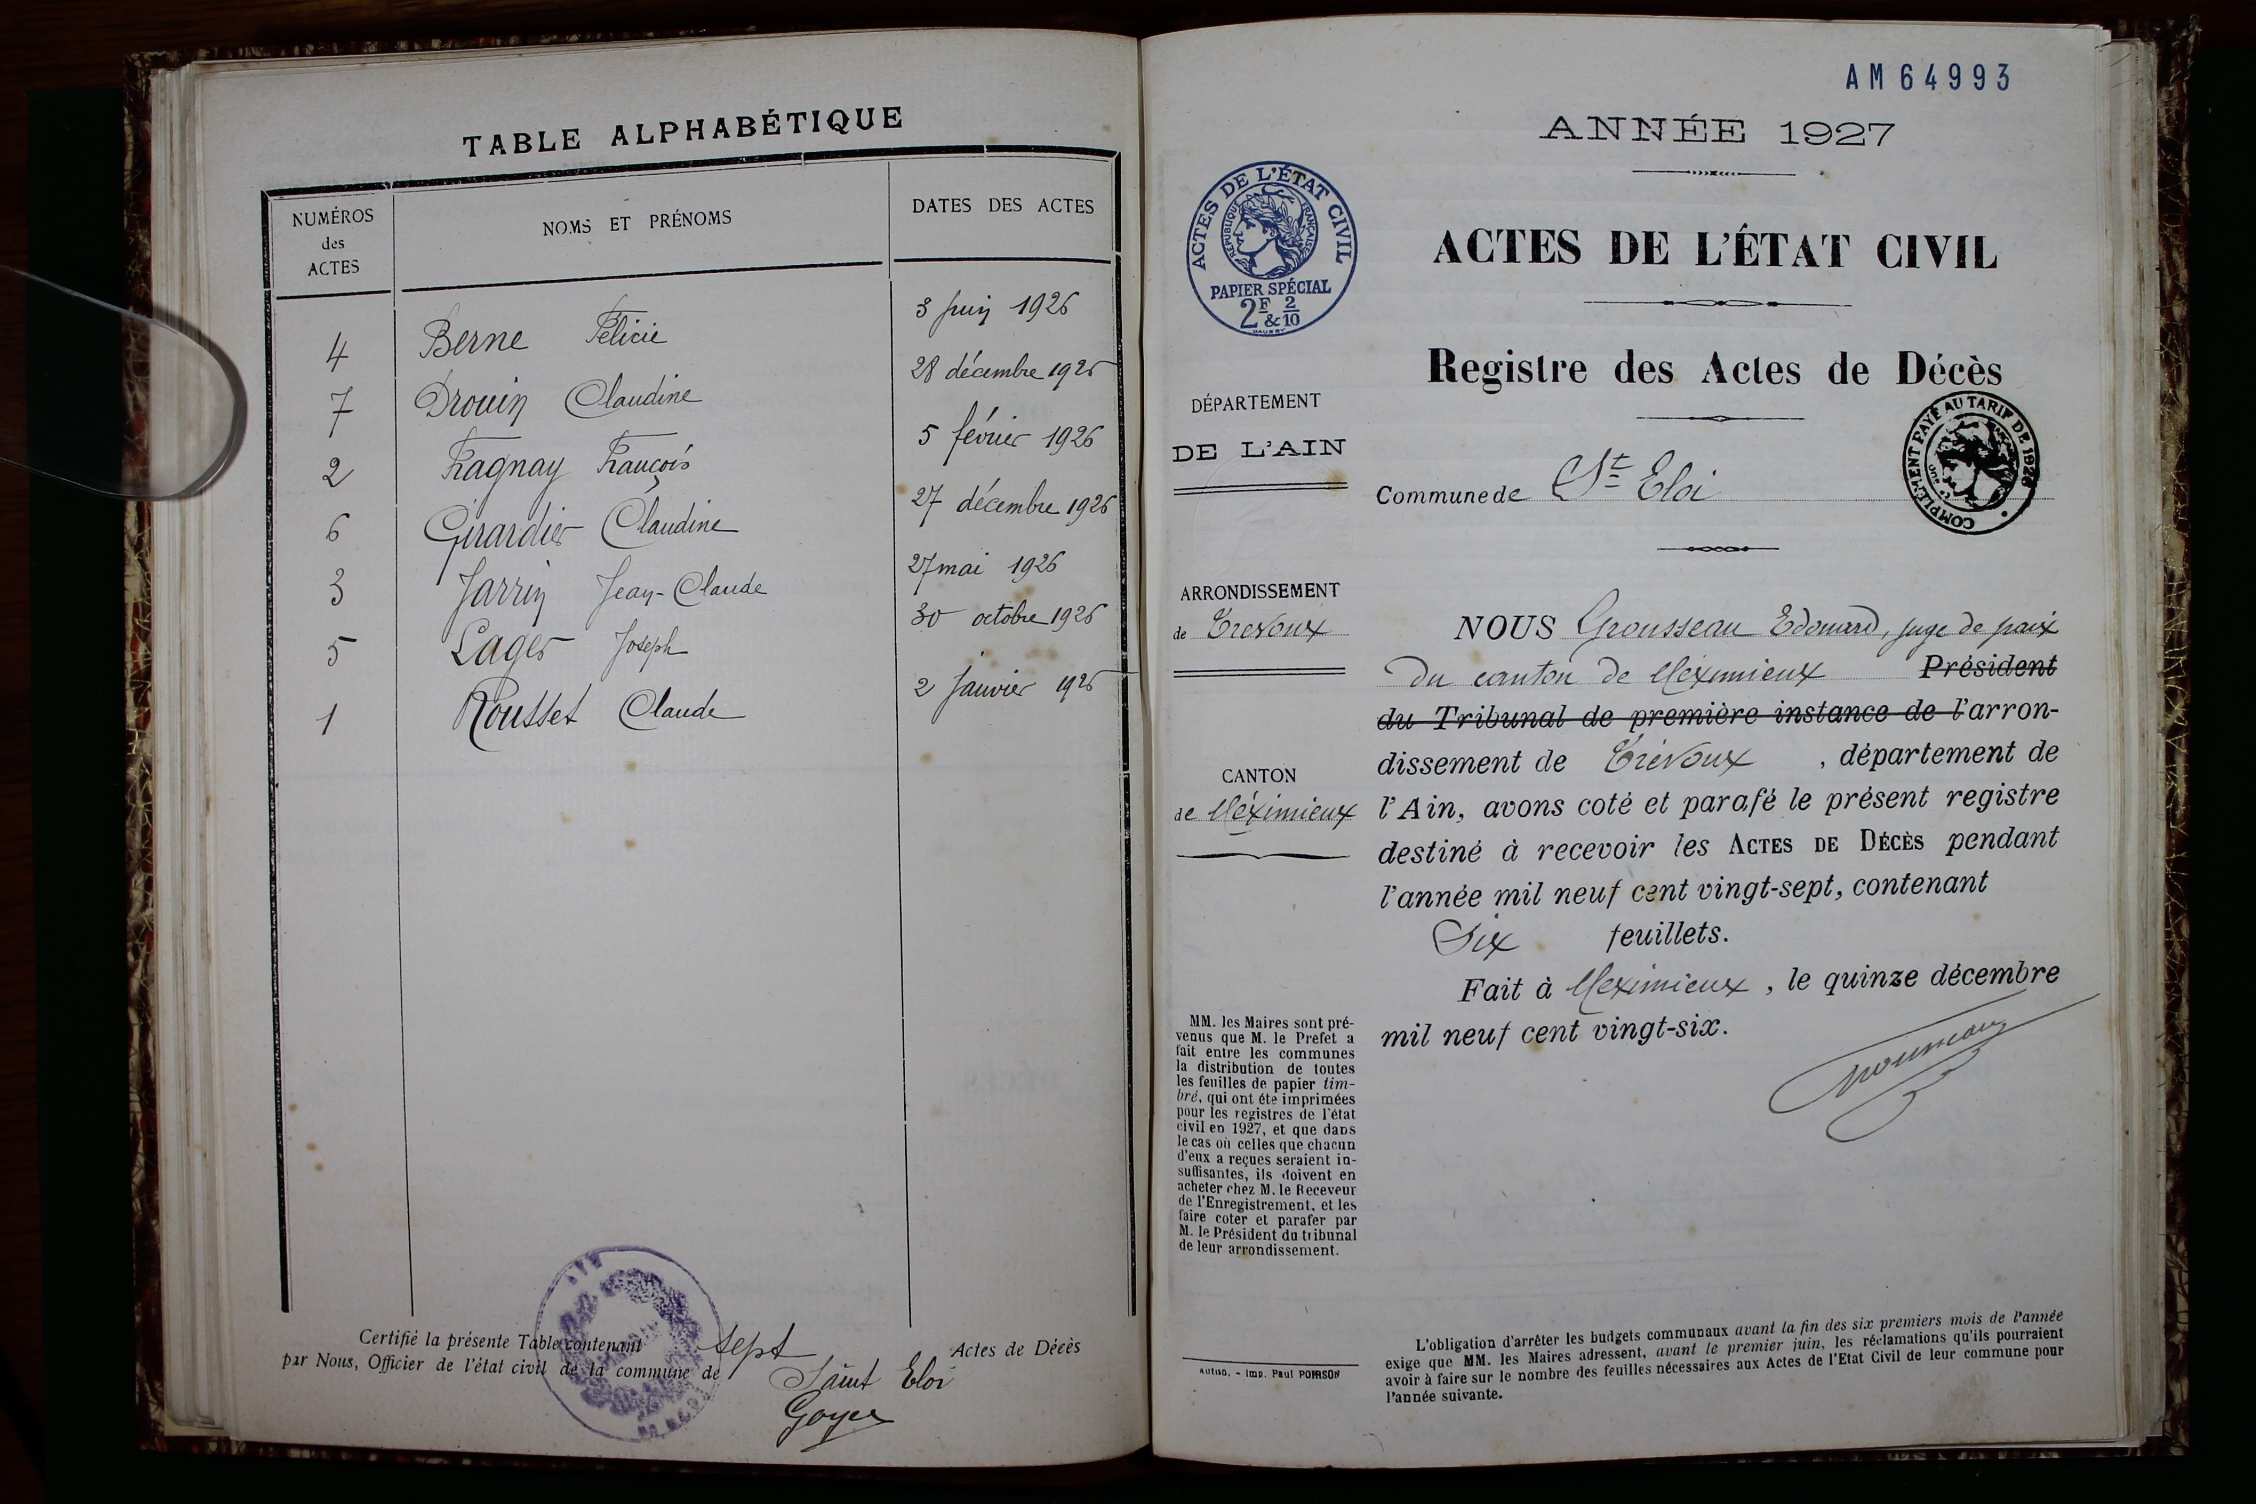 TABLE ALPHABÉTIQUE
NUMÉROS des ACTES
NOMS ET PRÉNOMS
DATES DES ACTES
4 Berne Félicie 3 juin 1926
7 Drouin Claudine 28 décembre 1926
2 Fragnay François 5 février 1926
6 Girardier Claudine 27 décembre 1926
3 Jarrin Jean-Claude 27 mai 1926
5 Lager Joseph 30 octobre 1926
1 Rousset Claude 2 Janvier 1926
Certifié la présente Table contenant sept Actes de Décès
par Nous, Officier de l'état civil de la commune de Saint Eloi
Goyer
AM 64993
ANNÉE 1927
ACTES DE L'ÉTAT CIVIL
RÉPUBLIQUE FRANÇAISE
PAPIER SPÉCIAL
2F & 2/10
ACTES DE L'ÉTAT CIVIL
Registre des Actes de Décès
COMPLÉMENT PAYÉ AU TARIF DE 1926
DÉPARTEMENT
DE L'AIN
Commune de St Eloi
ARRONDISSEMENT
de Trevoux
CANTON
de Méximieux
NOUS Grousseau Edouard, juge de paix
du canton de Meximieux Président
du Tribunal de première instance de l'arron-
dissement de Trévoux, département de
l'Ain, avons coté et parafé le présent registre
destiné à recevoir les ACTES DE DÉCÈS pendant
l'année mil neuf cent vingt-sept, contenant
Six feuillets.
Fait à Meximieux, le quinze décembre
mil neuf cent vingt-six.
MM. les Maires sont pré-
venus que M. le Prefet a
fait entre les communes
la distribution de toutes
les feuilles de papier tim-
bré, qui ont été imprimées
pour les registres de l'état
civil en 1927, et que dans
le cas où celles que chacun
d'eux a reçues seraient in-
suffisantes, ils doivent en
acheter chez M. le Receveur
de l'Enregistrement, et les
faire coter et parafer par
M. le Président du tribunal
de leur arrondissement.
Autun. - Imp. Paul POIRSON
L'obligation d'arrêter les budgets communaux avant la fin des six premiers mois de l'année
exige que MM. les Maires adressent, avant le premier juin, les réclamations qu'ils pourraient
avoir à faire sur le nombre des feuilles nécessaires aux Actes de l'Etat Civil de leur commune pour
l'année suivante.